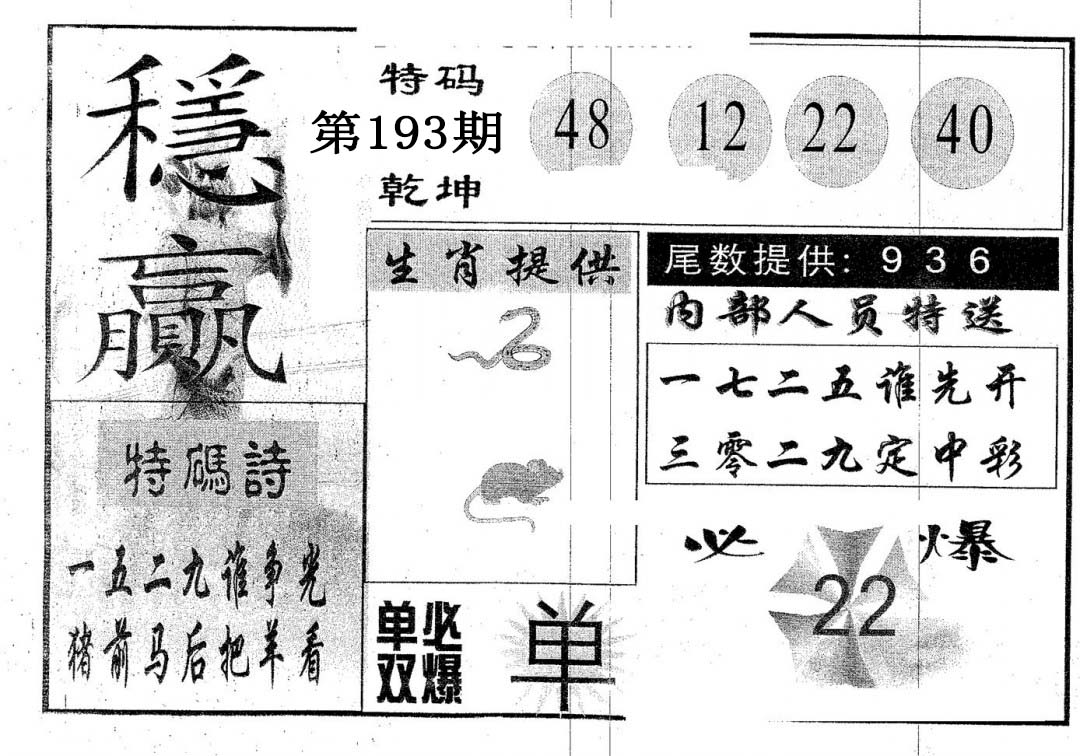 穩
贏
特码
第193期
乾坤
48 12 22 40
生肖提供
尾数提供: 9 3 6
内部人员特送
一七二五谁先开
三零二九定中彩
特碼詩
一五二九谁争光
猪前马后把羊看
单双
必爆
单
必 22 爆